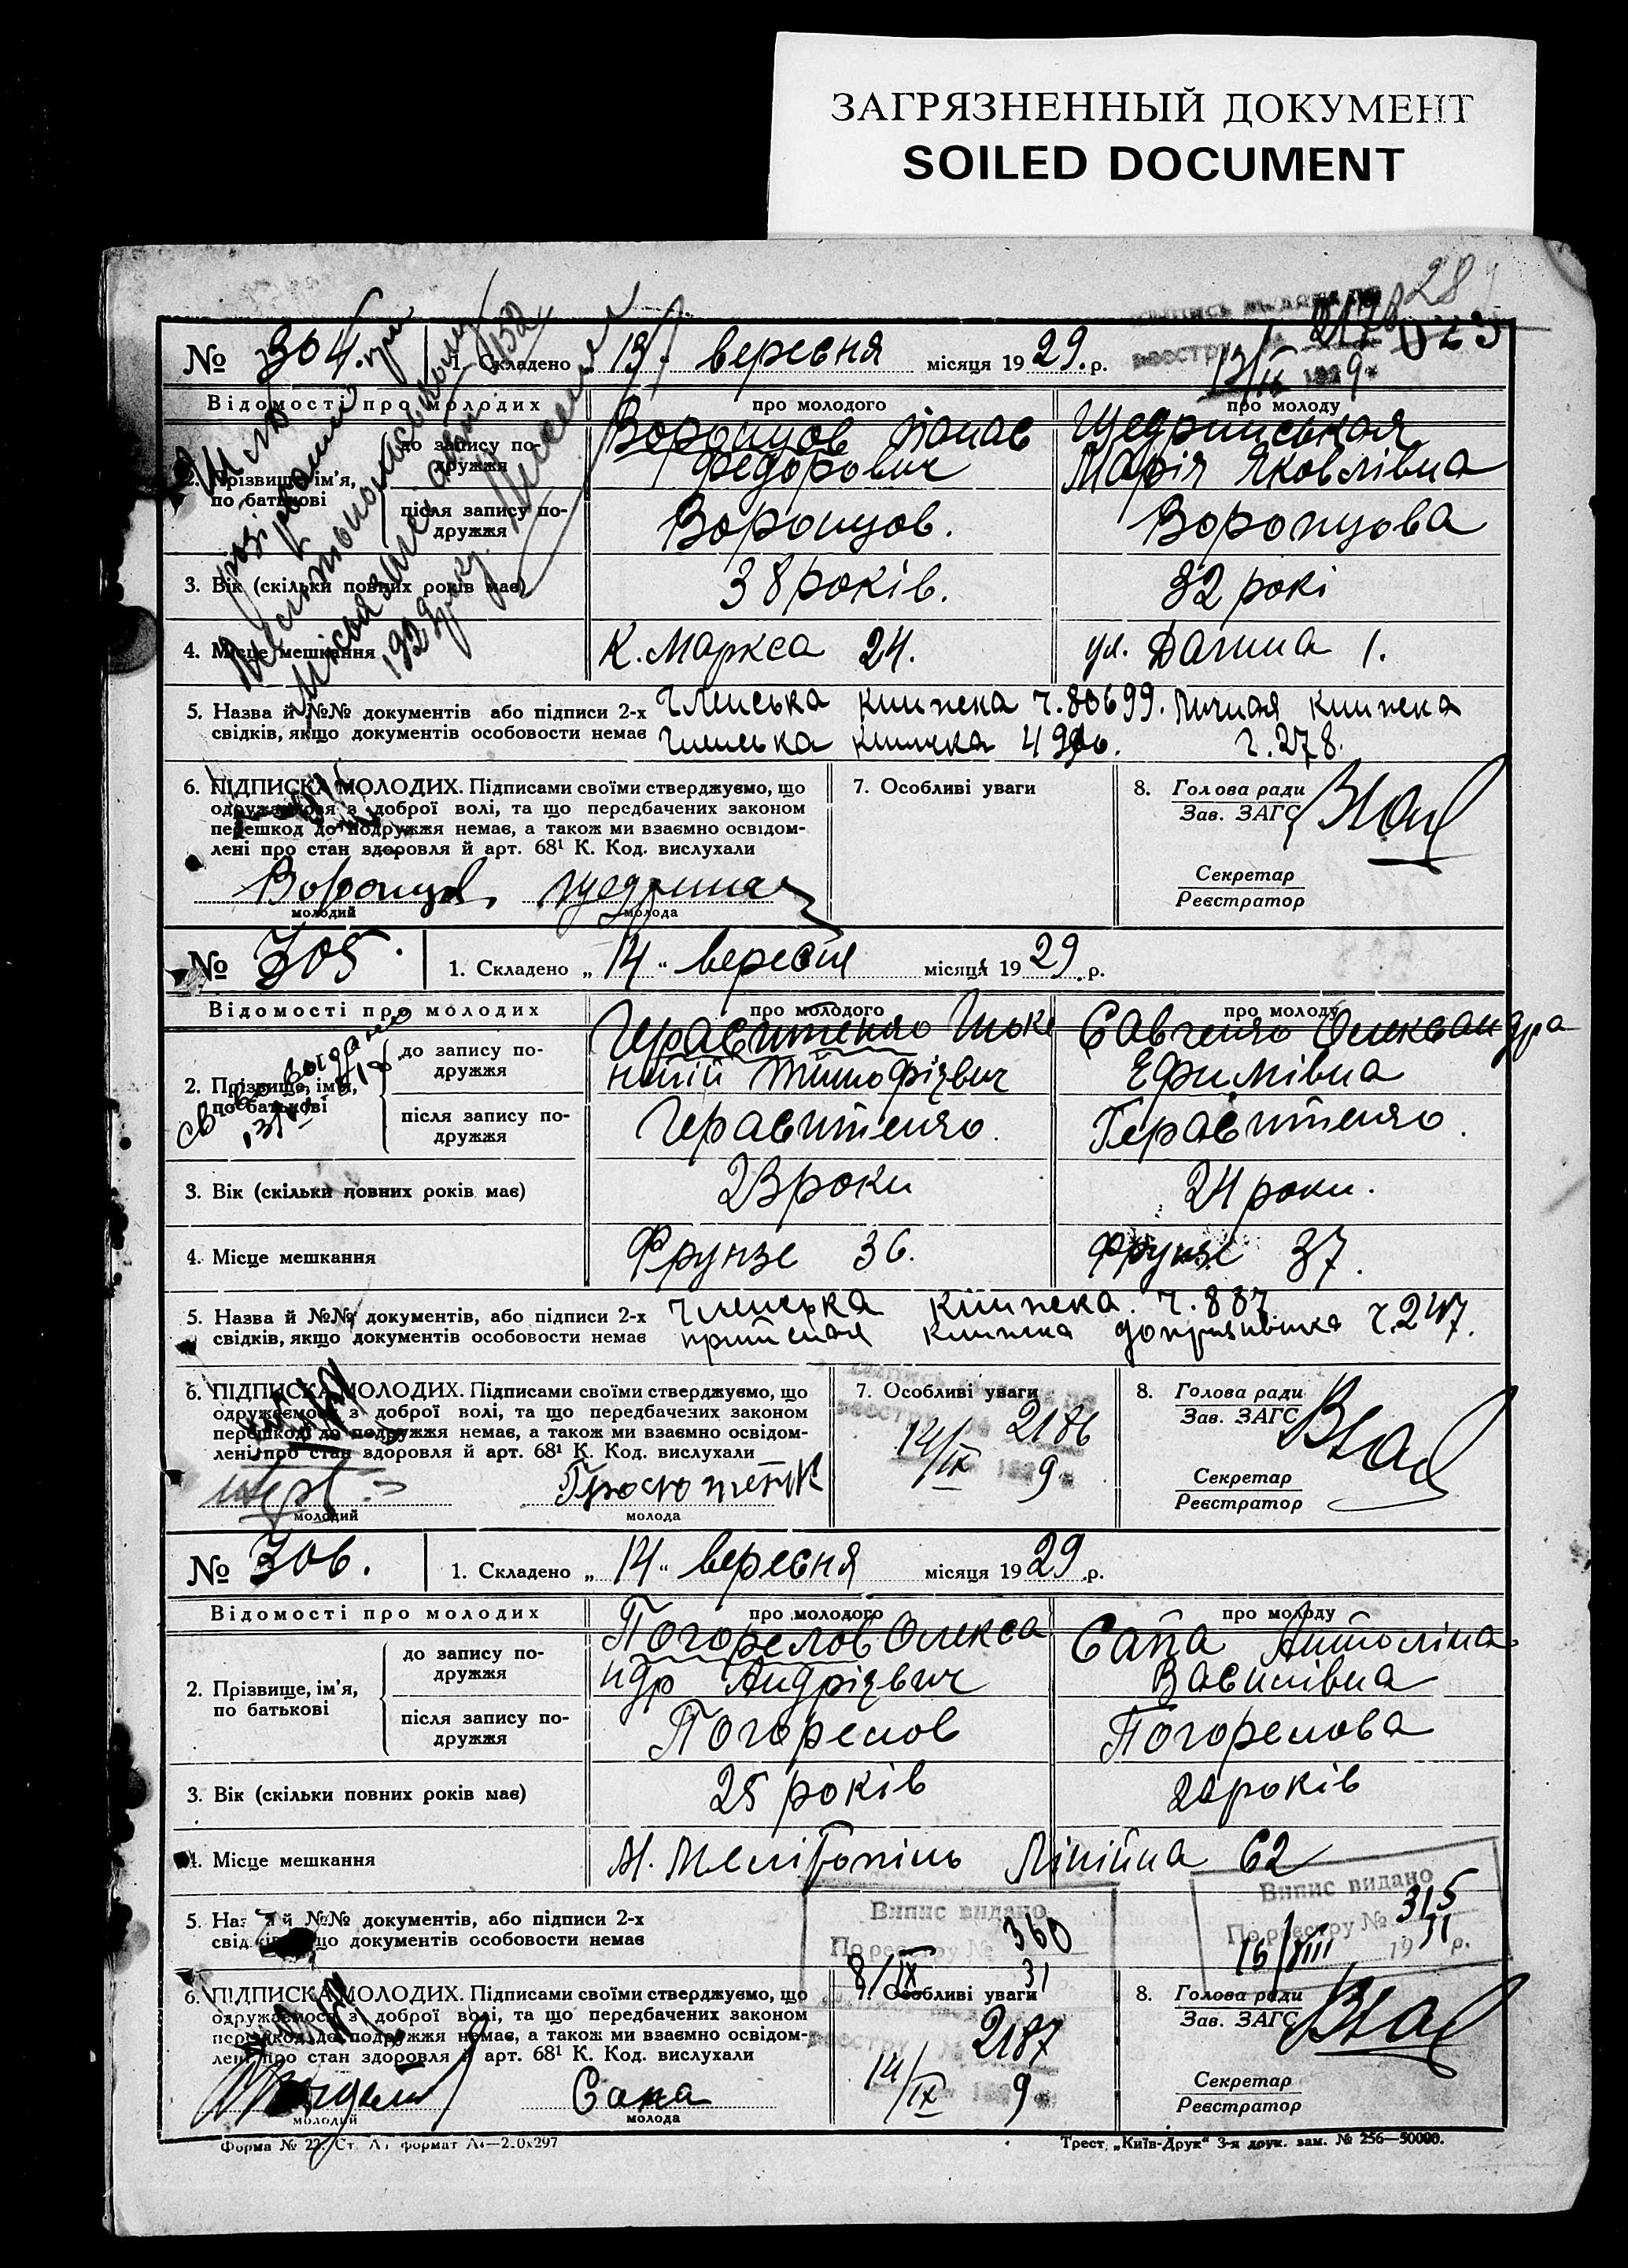 ЗАГРЯЗНЕННЫЙ ДОКУМЕНТ
SOILED DOCUMENT
289
№ 304.
1. Складено „13“ вересня місяця 1929.р.
13/IX 1929
Відомості про молодих
про молодого
про молоду
2. Прізвище, ім'я, по батькові
до запису подружжя
Воронцов Панас
Федорович
Щедринськая
Марія Яковлівна
після запису подружжя
Воронцов.
Воронцова
3. Вік (скільки повних років має)
38 років.
32 рокі
4. Місце мешкання
К. Маркса 24.
ул. 1.
5. Назва й №№ документів або підписи 2-х
свідків, якщо документів особовости немає
членська книжка ч.80699. книжка
ч.278.
6. ПІДПИСКА МОЛОДИХ. Підписами своїми стверджуємо, що
одружаємося з доброї волі, та що передбачених законом
перешкод до подружжя немає, а також ми взаємно освідом-
лені про стан здоровля й арт. 68¹ К. Код. вислухали
Воронцов
молодий
молода
7. Особливі уваги
8. Голова ради
Зав. ЗАГС
Секретар
Реєстратор
№ 305.
1. Складено „14“ вересня місяця 1929.р.
Відомості про молодих
про молодого
про молоду
2. Прізвище, ім'я, по батькові
до запису подружжя
Савченко Олександра
Тімофієвич
Ефимівна
після запису подружжя
3. Вік (скільки повних років має)
23 роки
24 роки.
4. Місце мешкання
Фрунзе 36.
Фрунзе 37.
5. Назва й №№ документів, або підписи 2-х
свідків, якщо документів особовости немає
членська книжка ч.887
книжка ч.247.
6. ПІДПИСКА МОЛОДИХ. Підписами своїми стверджуємо, що
одружаємося з доброї волі, та що передбачених законом
перешкод до подружжя немає, а також ми взаємно освідом-
лені про стан здоровля й арт. 68¹ К. Код. вислухали
молодий
молода
7. Особливі уваги
2186
14/IX 1929
8. Голова ради
Зав. ЗАГС
Секретар
Реєстратор
№ 306.
1. Складено „14“ вересня місяця 1929.р.
Відомості про молодих
про молодого
про молоду
2. Прізвище, ім'я, по батькові
до запису подружжя
Погорелов Олекса
ндр Андрієвич
Сапа
Василівна
після запису подружжя
Погорелов
Погорелова
3. Вік (скільки повних років має)
25 років
років
4. Місце мешкання
М. Мелітопіль Лінійна 62
5. Назва й №№ документів, або підписи 2-х
свідків, якщо документів особовости немає
Випис видано
По реєстру № 360
8/IX 31
Випис видано
По реєстру № 315
16/VIII 1931 р.
6. ПІДПИСКА МОЛОДИХ. Підписами своїми стверджуємо, що
одружаємося з доброї волі, та що передбачених законом
перешкод до подружжя немає, а також ми взаємно освідом-
лені про стан здоровля й арт. 68¹ К. Код. вислухали
молодий
Сапа
молода
7. Особливі уваги
2187
14/IX 1929
8. Голова ради
Зав. ЗАГС
Секретар
Реєстратор
Форма № 22.
Трест „Київ-Друк“ 3-я друк. зам. № 256—50000.